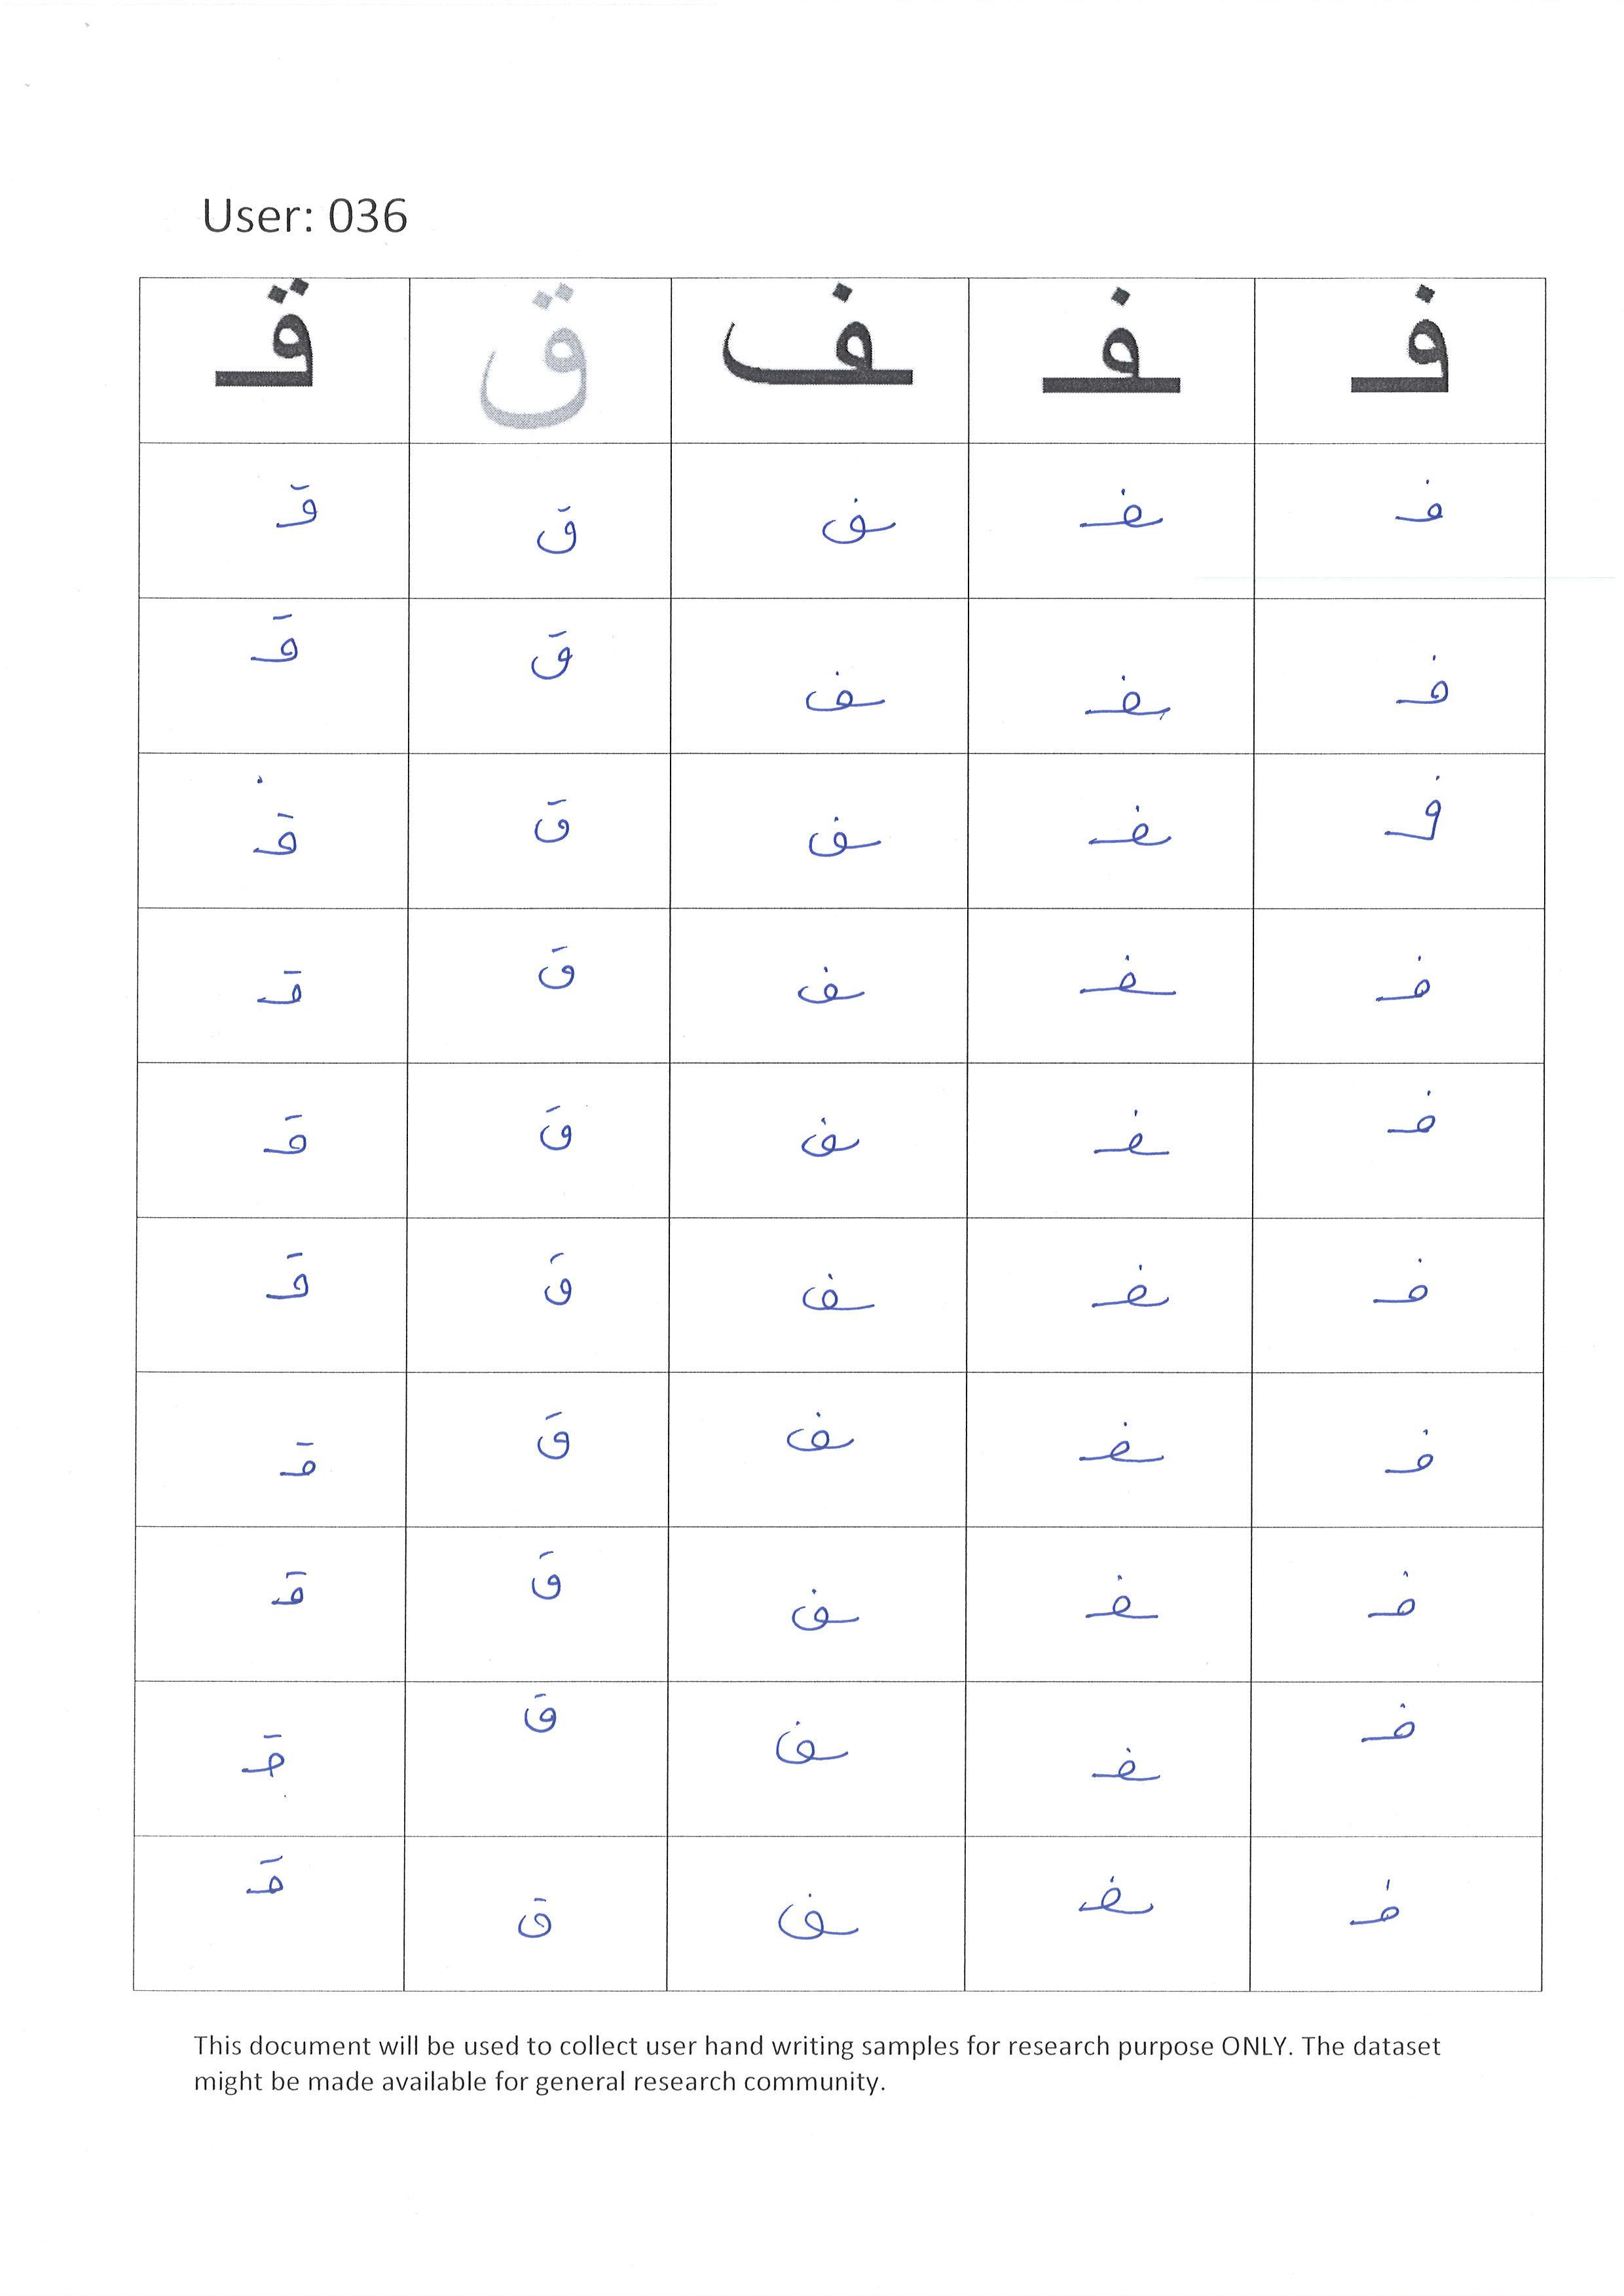 User: 036
فـ ـفـ ـف ق قـ
فـ ـفـ ـف ق قـ
فـ ـفـ ـف ق قـ
فـ ـفـ ـف ق قـ
فـ ـفـ ـف ق قـ
فـ ـفـ ـف ق قـ
فـ ـفـ ـف ق قـ
فـ ـفـ ـف ق قـ
فـ ـفـ ـف ق قـ
فـ ـفـ ـف ق قـ
فـ ـفـ ـف ق قـ
This document will be used to collect user hand writing samples for research purpose ONLY. The dataset
might be made available for general research community.